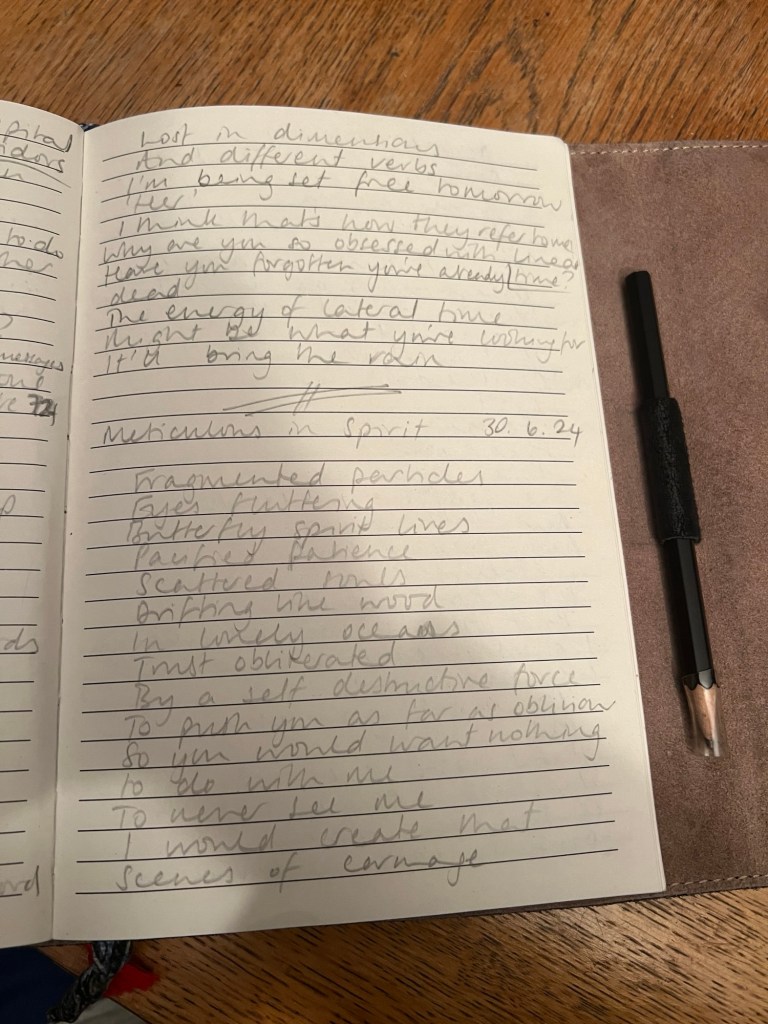 pital
idors
n
to-do
her
messages
724
ds
ord
Lost in dimentions
And different verbs
I'm being set free tomorrow
I think that's how they refer to me
Why are you so obsessed with linear
Have you forgotten you're already time?
dead
The energy of lateral time
Might be what you're looking for
It'd bring the rain
Meticulous in Spirit 30.6.24
Fragmented particles
Eyes fluttering
Butterfly spirit lives
Pacified Patience
Scattered souls
Drifting like wood
In lonely oceans
Trust obliterated
By a self destructive force
To push you as far as oblivion
So you would want nothing
to do with me
To never see me
I would create that
Scenes of carnage